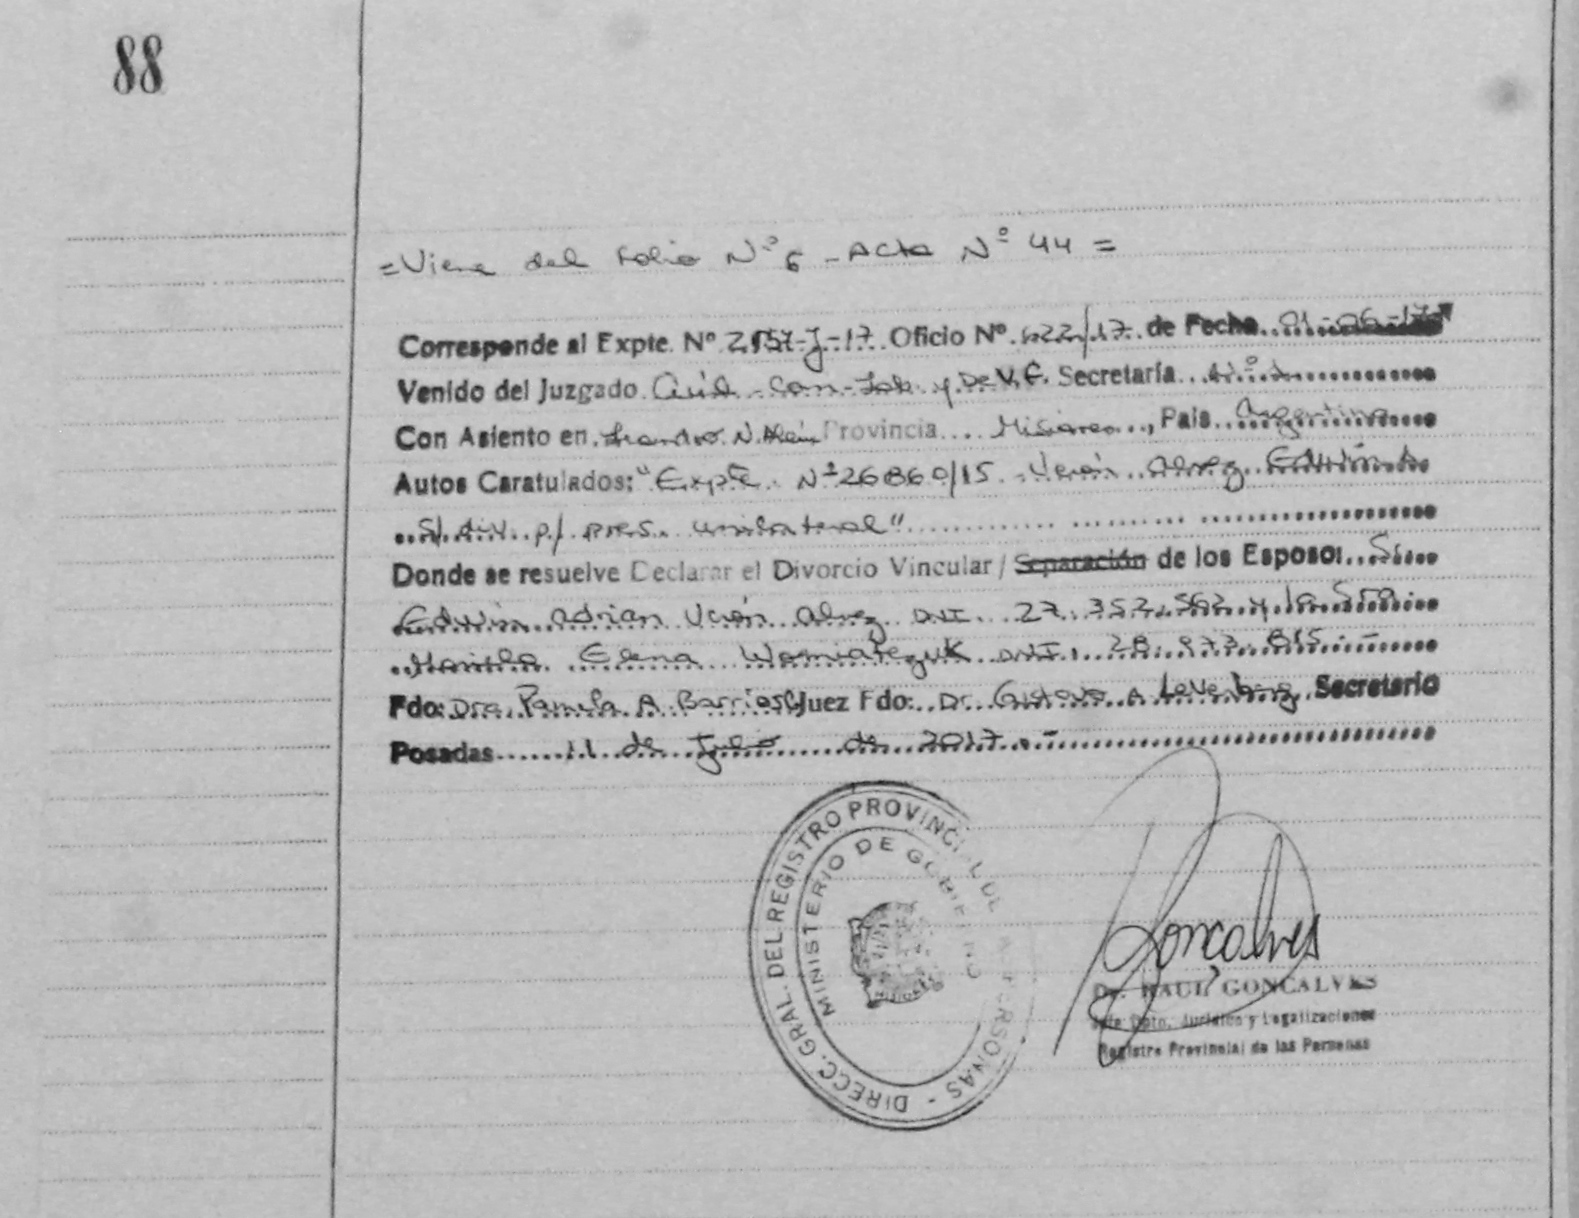 88
=Viene del Folio Nº 6 - Acta Nº 44 =
Corresponde al Expte. Nº 2157-J-17 Oficio Nº 622/17 de Fecha 01-06-17
Venido del Juzgado Civil - Com - Lab. y De V.F. Secretaría Nº
Con Asiento en Leandro N. Alem Provincia Misiones, País Argentina
Autos Caratulados: "Expte. Nº 26860/15 Verón Alvez Edwin A
S/ div. p/ pres. unilateral"
Donde se resuelve Declarar el Divorcio Vincular / Separación de los Esposos Sr.
Edwin Adrian Verón Alvez DNI. 27.352.562 y la Sra.
Elena DNI. 28.973.815.-
Fdo: Dra. Pamela A. Barrios Juez Fdo: Dr. Gustavo A. Secretario
Posadas 11 de Julio de 2017.-
DIRECC. GRAL. DEL REGISTRO PROVINCIAL DE LAS PERSONAS -
MINISTERIO DE GOBIERNO
MISIONES
Goncalves
Dr. RAUL GONCALVES
Jefe Dpto. Jurídico y Legalizaciones
Registro Provincial de las Personas